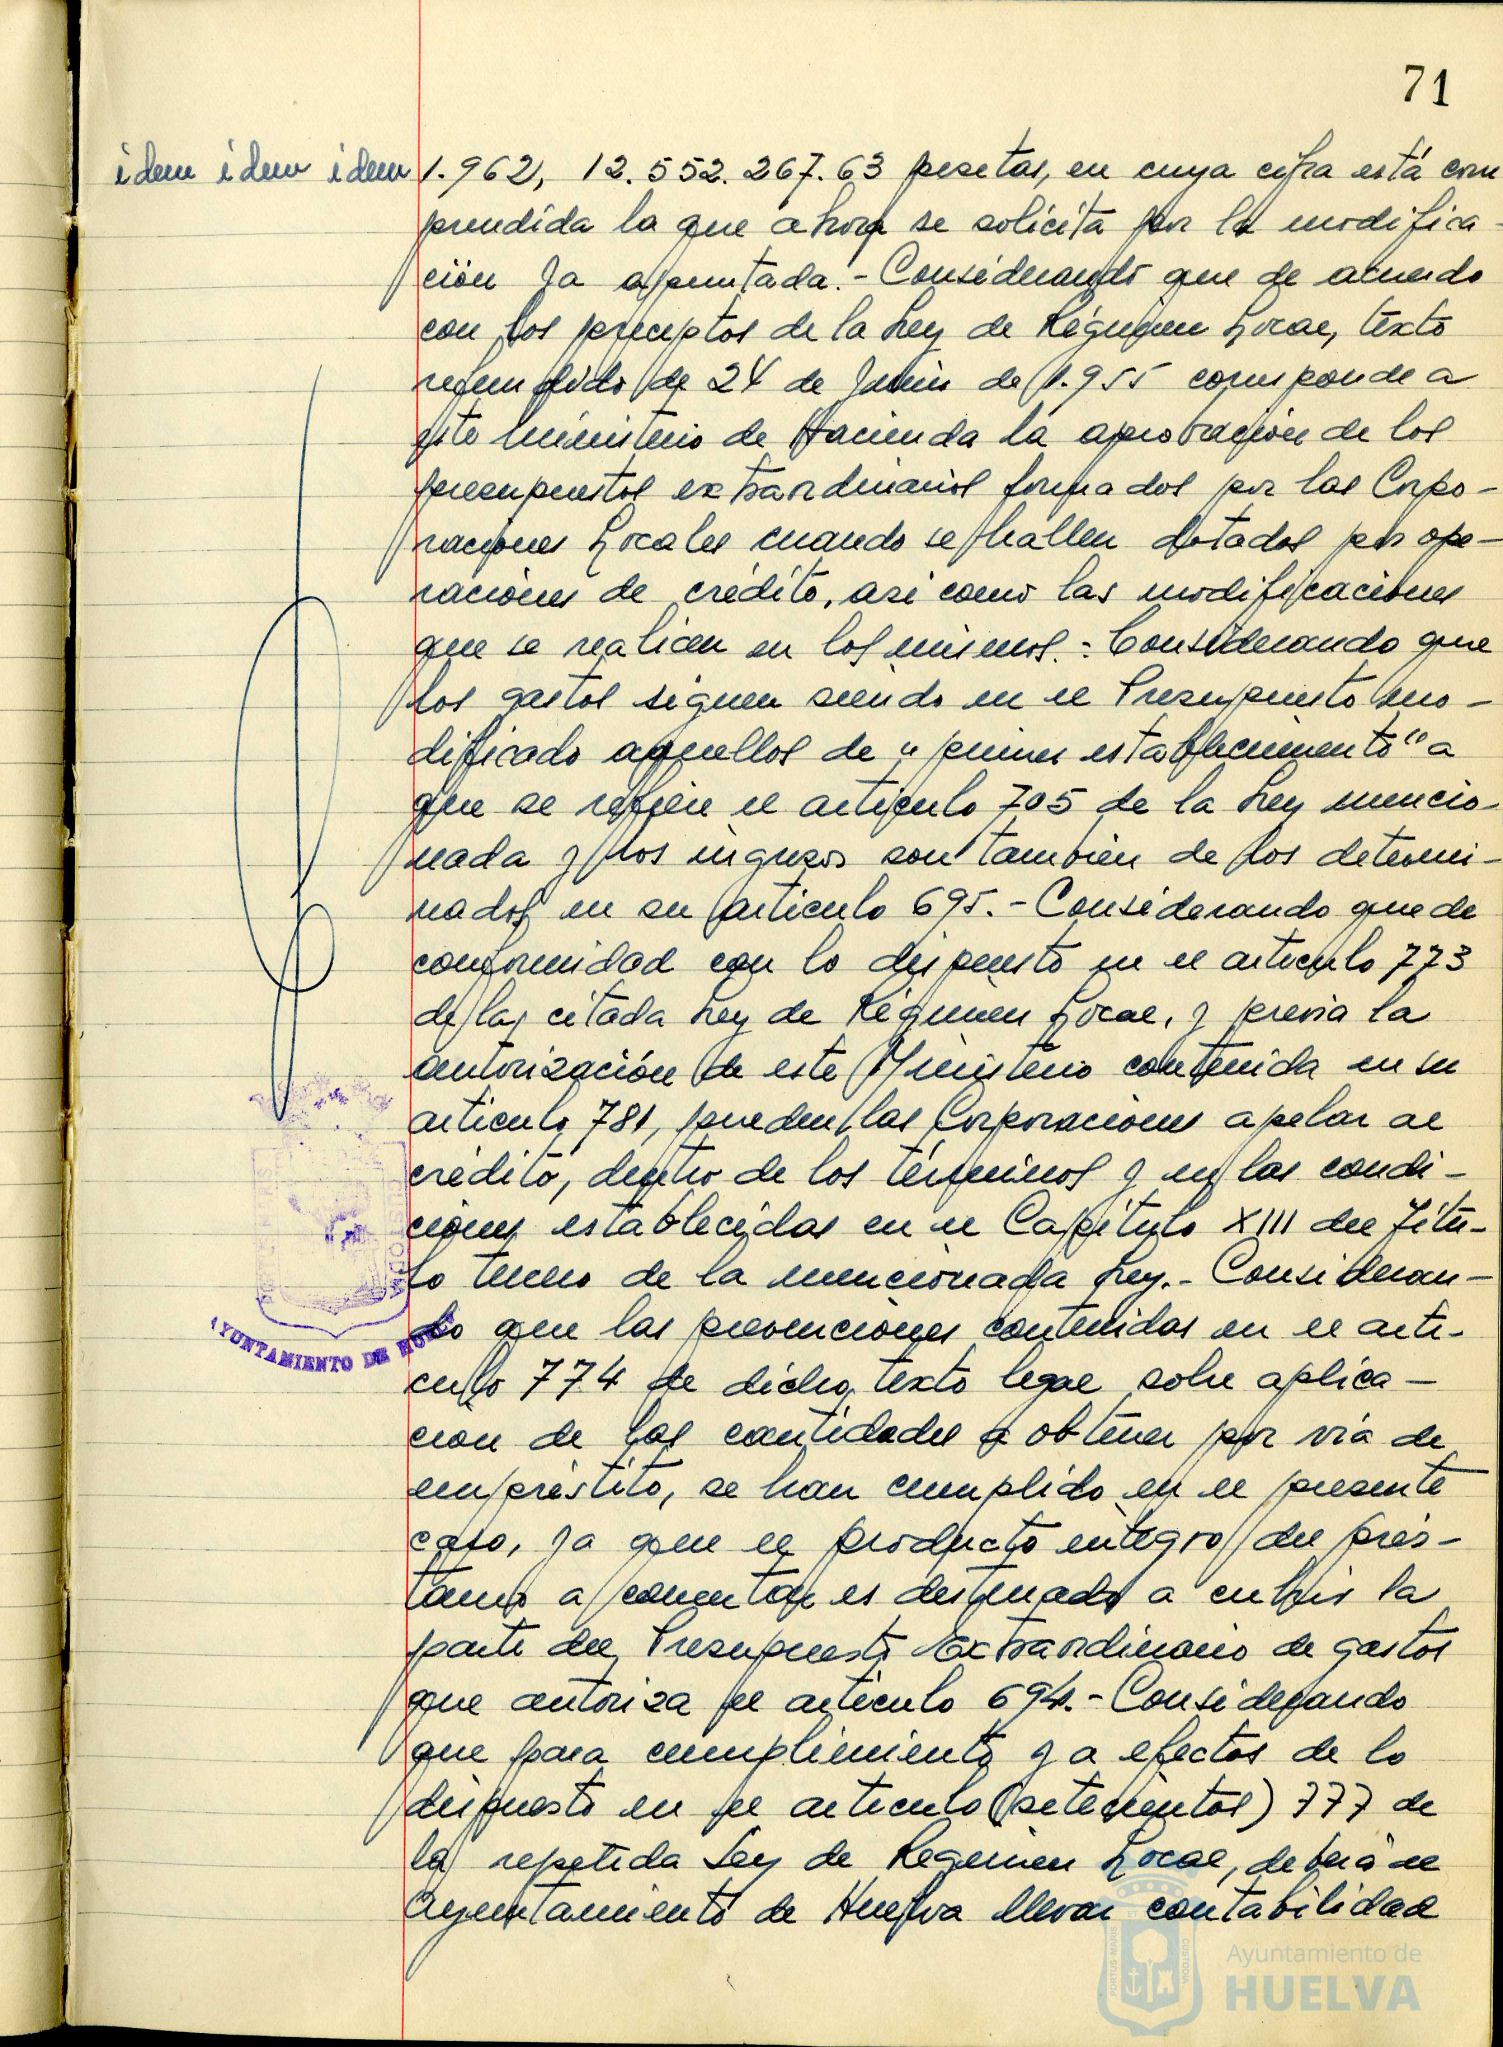 71
idem idem idem 1.962, 12.552.267.63 pesetas, en cuya cifra está com
prendida la que ahora se solicita por la modifica-
ción ya apuntada.- Considerando que de acuerdo
con los preceptos de la Ley de Régimen Local, texto
refundido de 24 de Junio de 1.955 corresponde a
este Ministerio de Hacienda la aprobación de los
presupuestos extraordinarios formados por las Corpo-
raciones Locales cuando se hallen dotados por ope-
raciones de crédito, asi como las modificaciones
que se realicen en los mismos.- Considerando que
los gastos siguen siendo en el Presupuesto mo-
dificado aquellos de "primer establecimiento" a
que se refiere el artículo 705 de la Ley mencio-
nada y los ingresos son también de los determi-
nados en su artículo 695.- Considerando que de
conformidad con lo dispuesto en el artículo 773
de la citada Ley de Régimen Local, y previa la
autorización de este Ministerio contenida en su
artículo 781, pueden las Corporaciones apelar al
crédito, dentro de los términos y en las condi-
ciones establecidas en el Capítulo XIII del Títu-
lo tercero de la mencionada Ley.- Consideran-
do que las prevenciones contenidas en el artí-
culo 774 de dicho texto legal sobre aplica-
ción de las cantidades a obtener por vía de
empréstito, se han cumplido en el presente
caso, ya que el producto integro del prés-
tamo a concertar es destinado a cubrir la
parte del Presupuesto Extraordinario de gastos
que autoriza el artículo 694.- Considerando
que para cumplimiento y a efectos de lo
dispuesto en el artículo (setecientos) 777 de
la repetida Ley de Régimen Local, deberá el
Ayuntamiento de Huelva llevar contabilidad
AYUNTAMIENTO DE HUELVA
PORTUS MARIS CUSTODIA
Ayuntamiento de
HUELVA